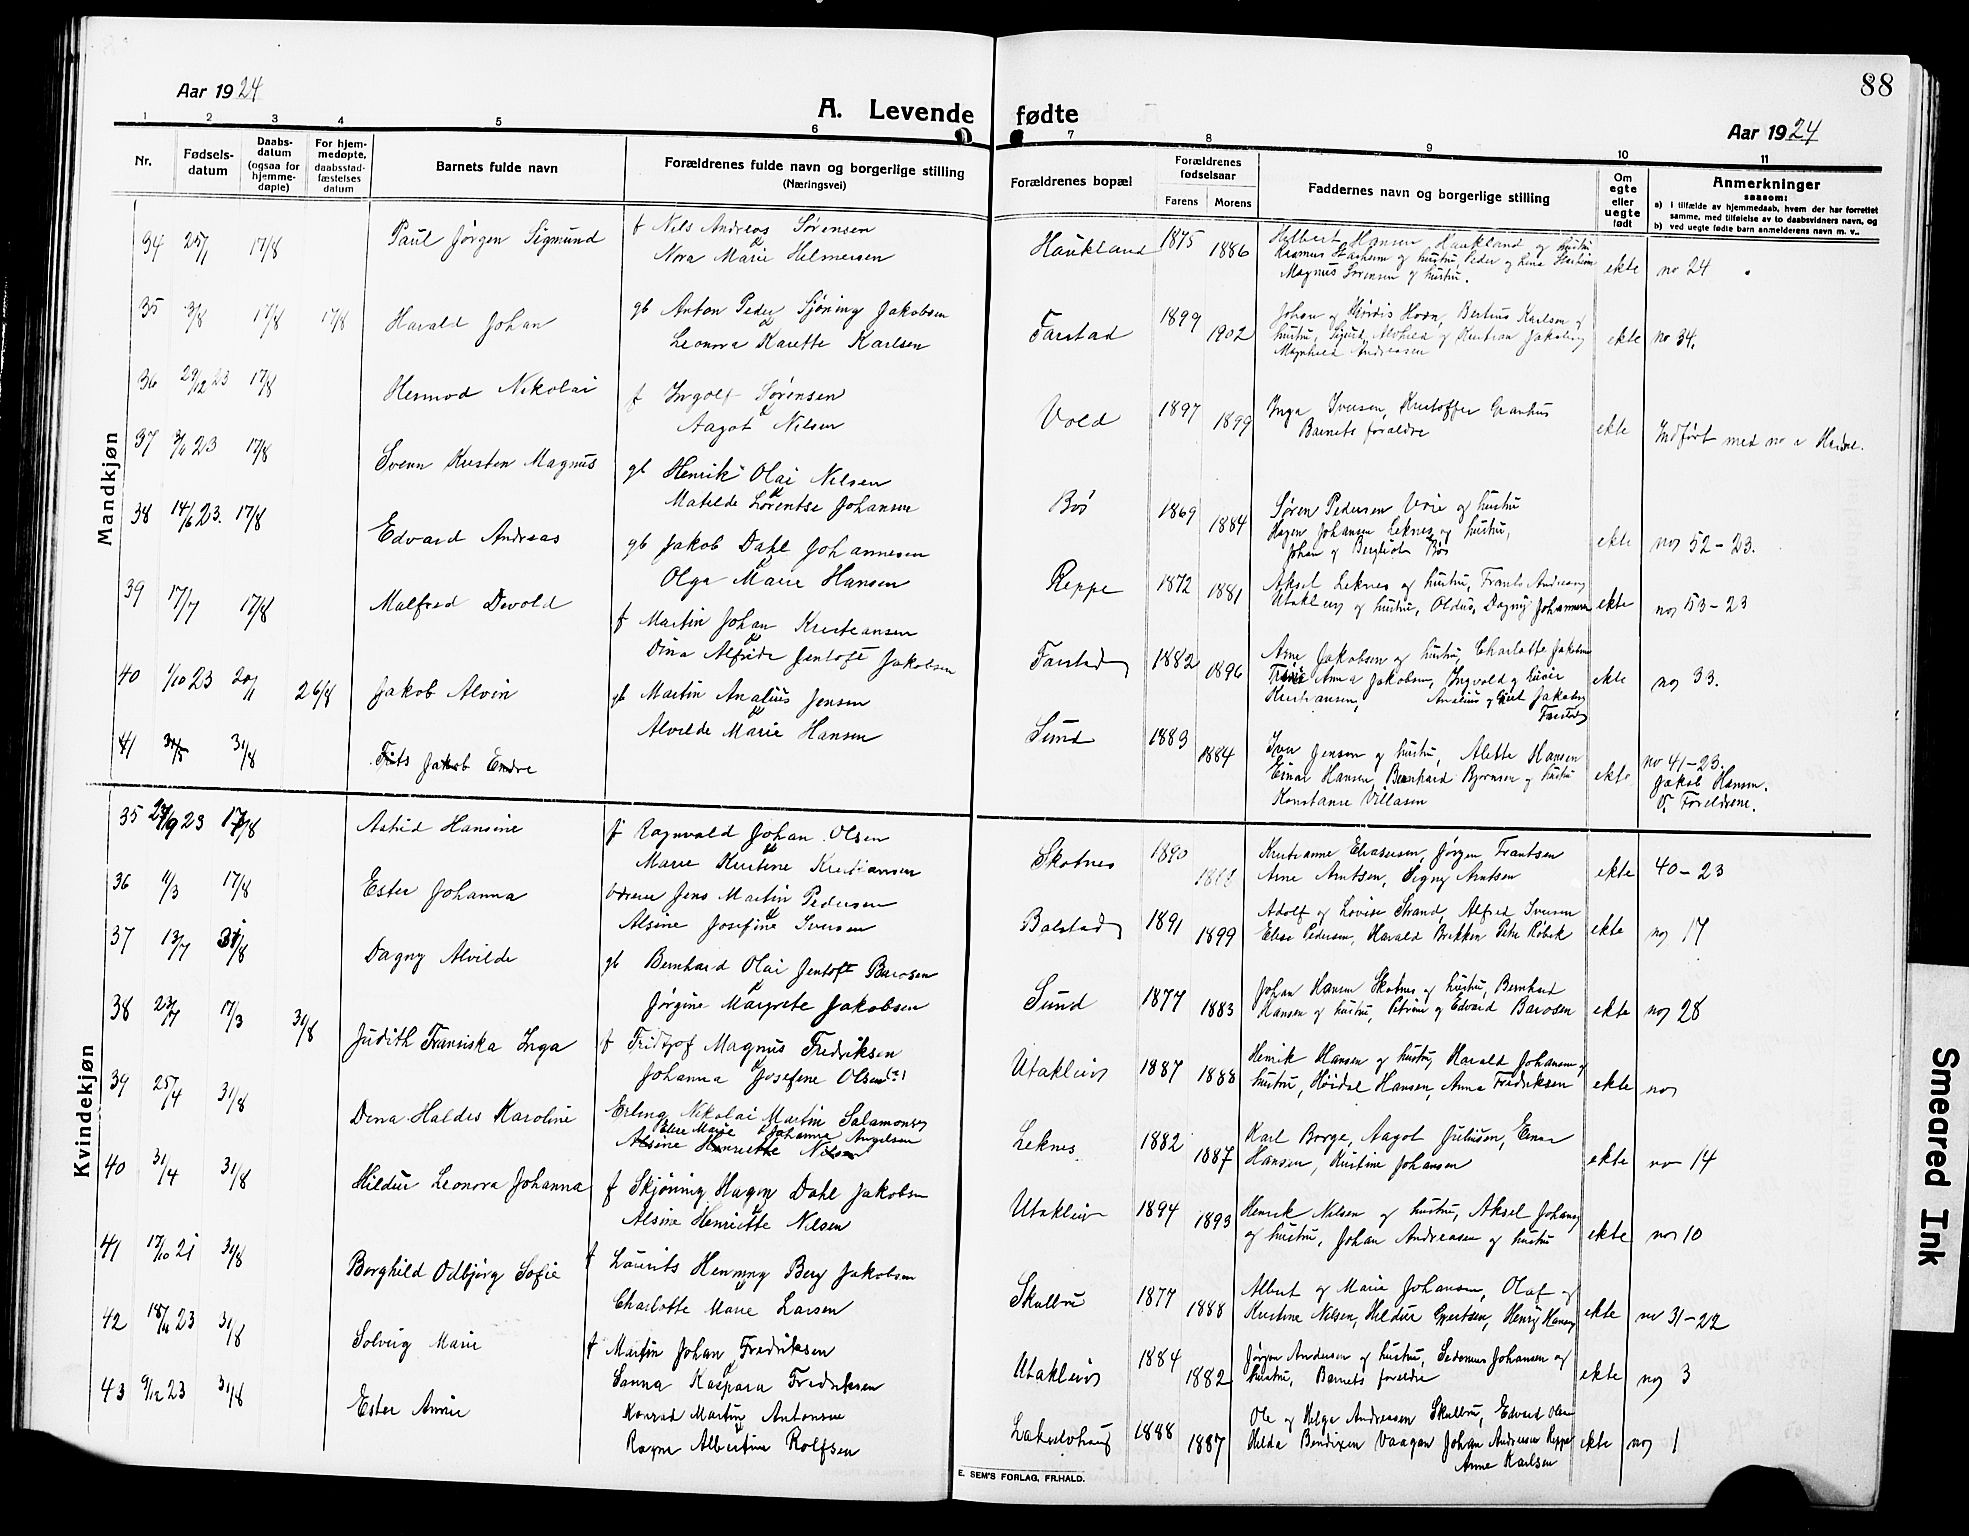 88
Aar 1924
A. Levende fødte
Aar 1924
1 2 3 4 5 6 7 8 9 10 11
Nr.
Fødsels-
datum
Daabs-
datum
(ogsaa for
hjemme-
døpte)
For hjem-
medøpte,
daabsstad-
fæstelses
datum
Barnets fulde navn
Forældrenes fulde navn og borgerlige stilling
(Næringsvei)
Forældrenes bopæl
Forældrenes
fødselsaar
Farens Morens
Faddernes navn og borgerlige stilling
Om
egte
eller
uegte
født
Anmerkninger
saasom:
a) i tilfælde av hjemmedaab, hvem der har forrettet
samme, med tilføielse av to daabsvidners navn, og
b) ved uegte fødte barn anmelderens navn m. v..
Mandkjøn
34 25/7 17/8 Paul Jørgen Sigmund f Nils Andreas Sørensen
Nora Marie Helmersen
Haukland 1875 1886
Hansen Haukland og hustru
Rasmus Stavheim og hustru, Peder og Lina Stavheim
Magnus Sørensen og hustru.
ekte no 24
35 3/8 17/8 17/8 Harald Johan gb Anton Peder Sjøning Jakobsen
Leonora Karette Karlsen
Farstad 1899 1902
Johan og Hjördis Horn, Bertius Karlsen og
hustru, Sigurd, Alvhild og Kristian Jakobsen
Magnhild Andreassen
ekte no 34.
36 29/12 23 17/8 Hermod Nikolai f Ingolf Sørensen
Aagot Nilsen
Vold 1897 1899
Inga Iversen, Kristoffer
Barnets foreldre
ekte Indført med no
37 23 17/8 Svenn Kristen Magnus gb Henrik Olai Nilsen
Matilde Lorentse Johansen
Bø 1869 1884
Søren Pedersen Voie og hustru
Hagen Johansen Leknes og hustru,
Johan og Bergliot Bø
ekte no 52-23.
38 14/6 23. 17/8 Edvard Andreas gb Jakob Dahl Johannesen
Olga Marie Hansen
Reppe 1872 1881
Aksel Leknes og hustru, Frants Andreasen
Utakleiv og hustru, Oldus, Dagny Johannesen
ekte no 53-23
39 17/7 17/8 Malfred Devold f Martin Johan Kristiansen
Dina Alfride Jentoft Jakobsen
Farstad 1882 1896
Arne Jakobsen og hustru, Charlotte Jakobsen
Anna Jakobsen, Ingvald og Luise
Kristiansen, Analius og Jakobsen
Farstad
ekte no 33.
40 1/10 23 20/1 26/8 Jakob Alvin gb Martin Analius Jensen
Alvilde Marie Hansen
Sund 1883 1884
Iver Jensen og hustru, Alette Hansen
Einar Hansen, Bernhard Bjørnsen og hustru
Konstanse Villasen
ekte no 41-23.
Jakob Hansen.
V. Foreldrene.
41 31/5 31/8 Frits Jakob Endre
Kvindekjøn
35 27/9 23 17/8 Astrid Hansine f Ragnvald Johan Olsen
Marie Kristine Kristiansen
Skotnes 1890
Kristianne Eliasersen, Jørgen Frantsen
Arne Arntsen, Signy Arntsen
ekte 40-23
36 11/3 17/8 Ester Johanna Jens Martin Pedersen
Alsine Josefine Iversen
Balstad 1891 1899
Adolf og Lovise Strand, Alfred Iversen
Elise Pedersen, Harald Brekken Petre Røbek
ekte no 17
37 13/7 31/8 Dagny Alvilde gb Bernhard Olai Jentoft Barosen
Jørgine Margrete Jakobsen
Sund 1877 1883
Johan Hansen Skotnes og hustru, Bernhard
Hansen og hustru, Petrine og Edvard Barosen
ekte no 28
38 23/7 17/3 31/8 Judith Franciska Inga f Fridtjof Magnus Fredriksen
Johanna Josefine Olsen
Utakleiv 1887 1888
Henrik Hansen og hustru, Harald Johansen og
hustru, Høidal Hansen, Anna Fredriksen
ekte no
39 25/4 31/8 Dina Haldis Karoline Erling Nikolai Martin Salamonsen
Elise Marie Johanna Angelsen
Alsine Henriette Nilsen
Leknes 1882 1887
Karl Borge, Aagot Juliusen, Einar
Hansen, Kristine Johansen
ekte no 14
40 31/4 31/8 Hildur Leonora Johanna f Skjøning Hagen Dahl Jakobsen
Alsine Henriette Nilsen
Utakleiv 1894 1893
Henrik Nilsen og hustru, Aksel Johansen
og hustru, Johan Andreasen og hustru
ekte no 10
41 17/10 21 31/8 Borghild Odbjørg Sofie f Laurits Henning Berg Jakobsen
Charlotte Marie Larsen
Skulbru 1877 1888
Albert og Marie Johansen, Olaf og
Kristine Nilsen, Hildur Gjertsen, Henry Hansen
ekte no 31-22
42 23 31/8 Solveig Marie f Martin Johan Fredriksen
Sanna Kaspara Fredriksen
Utakleiv 1884 1882
Jørgen Andersen og hustru, Sedonius Johansen og
hustru, Barnets foreldre
ekte no 3
43 9/12 23 31/8 Ester Annie Konrad Martin Antonsen
Ragna Albertine Rolfsen
1888 1887
Ole og Helga Andreassen Skulbru, Edvard Olsen
Helda Bendixen Vaagan Johan Andersen Reppe
Anne Karlsen
ekte no 1
E. SEM'S FORLAG, FR.HALD.
Smeared Ink